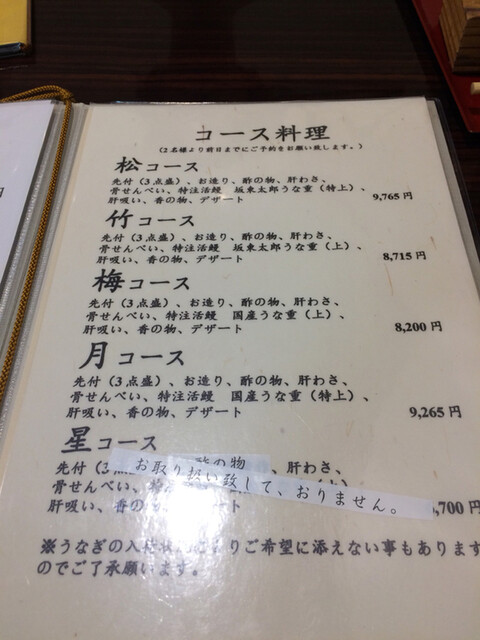 コース料理
(2名様より前日までにご予約をお願い致します。)
松コース
先付(3点盛)、お造り、酢の物、肝わさ、
骨せんべい、特注活鰻 坂東太郎うな重(特上)、
肝吸い、香の物、デザート
9,765 円
竹コース
先付(3点盛)、お造り、酢の物、肝わさ、
骨せんべい、特注活鰻 坂東太郎うな重(上)、
肝吸い、香の物、デザート
8,715 円
梅コース
先付(3点盛)、お造り、酢の物、肝わさ、
骨せんべい、特注活鰻 国産うな重(上)、
肝吸い、香の物、デザート
8,200 円
月コース
先付(3点盛)、お造り、酢の物、肝わさ、
骨せんべい、特注活鰻 国産うな重(特上)、
肝吸い、香の物、デザート
9,265 円
星コース
先付(3 酢の物、肝わさ、
お取り扱い致して、おりません。
骨せんべい、特
肝吸い、香の物、デザート
,700 円
※うなぎの入 りご希望に添えない事もあります
のでご了承願います。
円